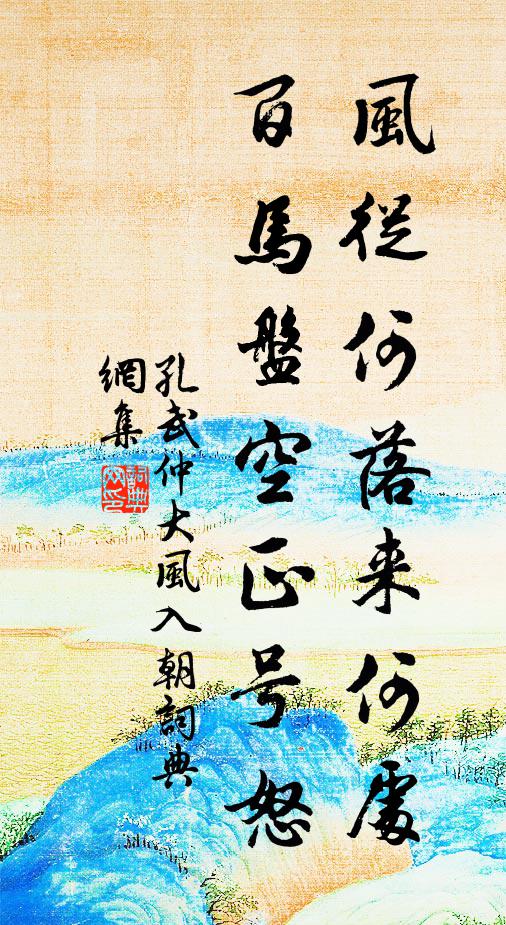 風從何落来何處
百馬盤空正号怒
孔武仲大風入朝詞典
網集